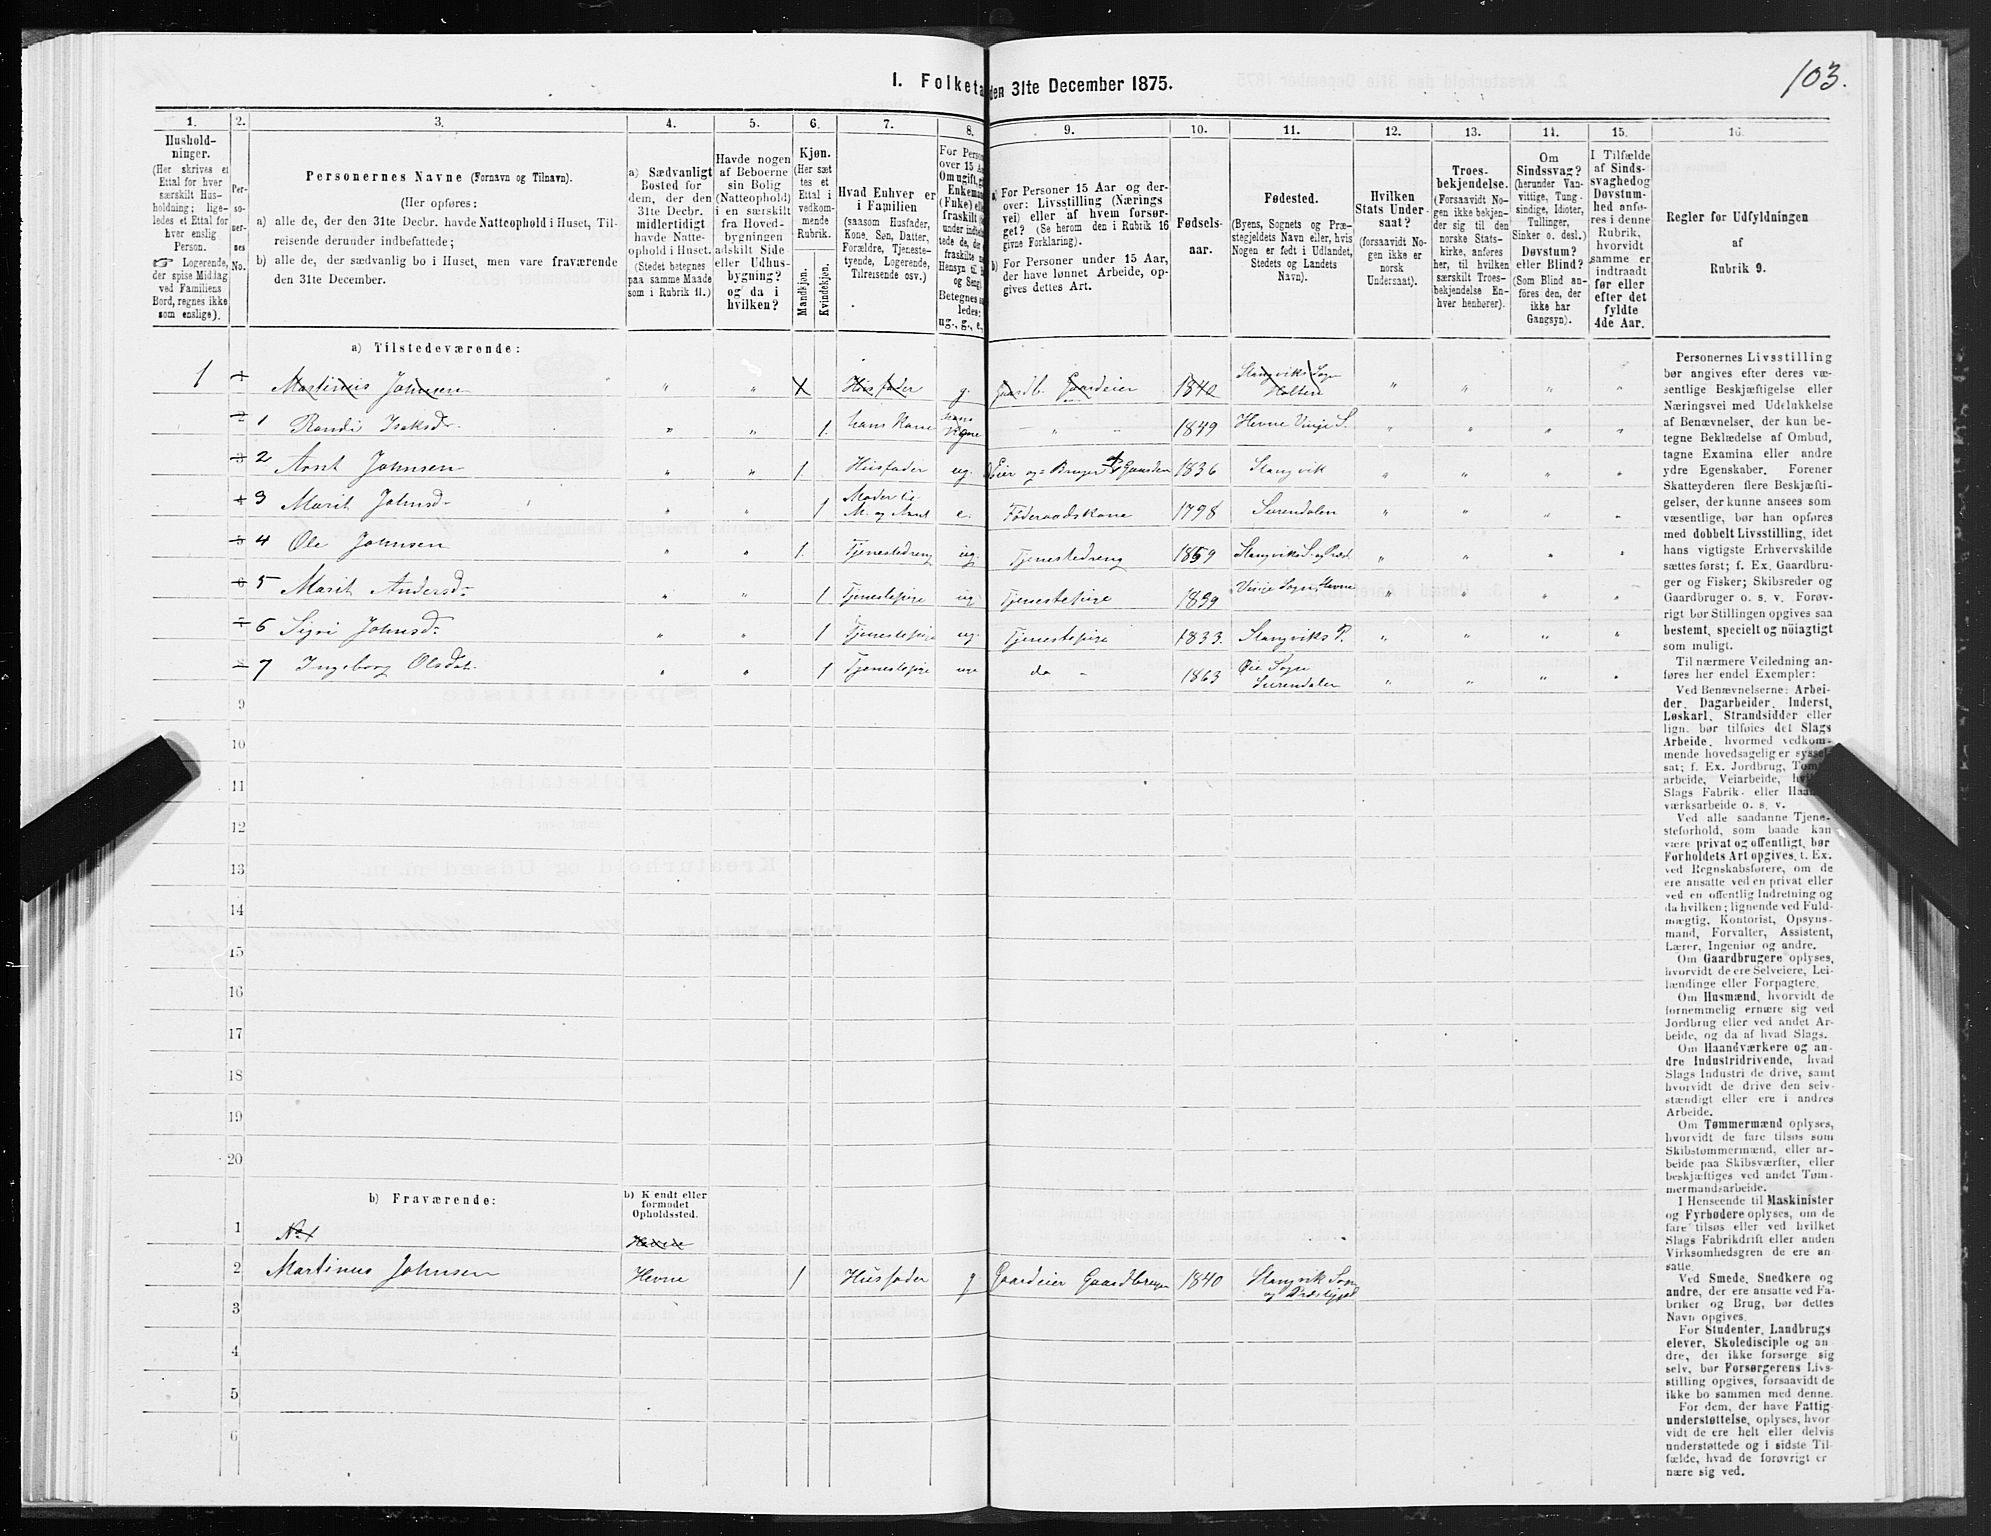 103.
1. Folketa den 31te December 1875.
1. 2. 3. 4. 5. 6. 7. 8. 9. 10. 11. 12. 13. 14. 15. 16.
Hushold-
ninger.
(Her skrives et
Ettal for hver
særskilt Hus-
holdning; lige-
ledes et Ettal for
hver enslig
Person.
☞ Logerende,
der spise Middag
ved Familiens
Bord, regnes ikke
som enslige).
Per-
so-
ner-
nes
No.
Personernes Navne (Fornavn og Tilnavn).
(Her opføres:
a) alle de, der den 31te Decbr. havde Natteophold i Huset, Til-
reisende derunder indbefattede;
b) alle de, der sædvanlig bo i Huset, men vare fraværende
den 31te December.
a) Sædvanligt
Bosted for
dem, der den
31te Decbr.
midlertidigt
havde Natte-
ophold i Huset.
(Stedet betegnes
paa samme Maade
som i Rubrik 11.)
Havde nogen
af Beboerne
sin Bolig
(Natteophold)
i en særskilt
fra Hoved-
bygningen
adskilt Side
eller Udhus-
bygning?
og da i
hvilken?
Kjøn.
(Her sæt
tes et
Ettal i
vedkom-
mende
Rubrik.
Mandkjøn.
Kvindekjøn.
Hvad Enhver er
i Familien
(saasom Husfader,
Kone, Søn, Datter,
Forældre, Tjeneste-
tyende, Logerende,
Tilreisende osv.)
For Person
over 15 A
Om ugift, g
Enkema
(Fnke) elle
fraskilt
under indbe
tede de,
fraskilte
Hensyn til
og Seng
Betegnes
ledes:
ug., g., e,
a) For Personer 15 Aar og der-
over: Livsstilling (Nærings
vei) eller af hvem forsør-
get? (Se herom den i Rubrik 16
givne Forklaring).
b) For Personer under 15 Aar,
der have lønnet Arbeide, op-
gives dettes Art.
Fødsels-
aar.
Fødested.
(Byens, Sognets og Præ-
stegjeldets Navn eller, hvis
Nogen er født i Udlandet,
Stedets og Landets
Navn).
Hvilken
Stats Under-
saat?
(forsaavidt No-
gen ikke er
norsk
Undersaat).
Troes-
bekjendelse.
(Forsaavidt No-
gen ikke bekjen-
der sig til den
norske Stats-
kirke, anføres
her, til hvilken
særskilt Troes-
bekjendelse En-
hver henhører).
Om
Sindssvag?
(herunder Van-
vittige, Tung-
sindige, Idioter,
Tullinger,
Sinker o. desl.)
Døvstum?
eller Blind?
(Som Blind an-
føres den, der
ikke har
Gangsyn).
I Tilfælde
af Sinds-
svaghed og
Døvstum-
hed anfø-
res i denne
Rubrik,
hvorvidt
samme er
indtraadt
før eller
efter det
fyldte
4de Aar.
Regler for Udfyldningen
af
Rubrik 9.
a) Tilstedeværende:
1 1 Martinus Johnsen " " X Husfader g. Gaardb. Gaardeier 1840 Stangviks Sogn Holten " " " "
2 1 Randi Isaksd. " " 1. hans Kone gine — " " 1849 Hevne Vinje S. " " " "
3 2 Arnt Johnsen " " 1. Husfader ug. Eier og Bruger af Gaarden 1836 Stangvik " " " "
4 3 Marit Johnsd. " " 1 Moder til M. og Arnt e. Føderaadskone 1798 Surendalen " " " "
5 4 Ole Johnsen " " 1. Tjenestedreng ug. Tjenestedreng 1859 Stangviks S. og Præst " " " "
6 5 Marit Andersd. " " 1 Tjenestepige ug. Tjenestepige 1839 Vinje Sogn, Hevne " " " "
7 6 Sigri Johnsd. " " 1 Tjenestepige ug. Tjenestepige 1833. Stangviks P. " " " "
8 7 Ingeborg Olsdat. " " 1 Tjenestepige ug. do " 1863 Øie Sogn Surendalen " " " "
9
10
11
12
13
14
15
16
17
18
19
20
b) Fraværende:
b) Kjendt eller
formodet
Opholdssted.
1 No. 1 Hevne
2 Martinus Johnsen Hevne 1 Husfader g Gaardeier Gaardbruger 1840 Stangvik Sogn og Præstegjel
3
4
5
6
Personernes Livsstilling
bør angives efter deres væ-
sentlige Beskjæftigelse eller
Næringsvei med Udelukkelse
af Benævnelser, der kun be-
tegne Beklædelse af Ombud,
tagne Examina eller andre
ydre Egenskaber. Forener
Skatteyderen flere Beskjæfti-
gelser, der kunne ansees som
væsentlige, bør han opføres
med dobbelt Livsstilling, idet
hans vigtigste Erhvervskilde
sættes først; f. Ex. Gaardbru-
ger og Fisker; Skibsreder og
Gaardbruger o. s. v. Forøv-
rigt bør Stillingen opgives saa
bestemt, specielt og nöiagtigt
som muligt.
Til nærmere Veiledning an-
føres her endel Exempler:
Ved Benævnelserne: Arbei-
der, Dagarbeider, Inderst,
Løskarl, Strandsidder eller
lign. bør tilføies det Slags
Arbeide, hvormed vedkom-
mende hovedsagelig er syssel-
sat; f. Ex. Jordbrug, Tøm
arbeide, Veiarbeide, hvilke
Slags Fabrik- eller Haand
værksarbeide o. s. v.
Ved alle saadanne Tjene-
steforhold, som baade kan
være privat og offentligt, bør
Forholdets Art opgives, t. Ex.
ved Regnskabsførere, om de
ere ansatte ved en privat eller
ved en offentlig Indretning og
da hvilken; lignende ved Fuld-
mægtig, Kontorist, Opsyns-
mand, Forvalter, Assistent,
Lærer, Ingeniør og andre.
Om Gaardbrugere oplyses,
hvorvidt de ere Selveiere, Lei-
lændinge eller Forpagtere.
Om Husmænd, hvorvidt de
fornemmelig ernære sig ved
Jordbrug eller ved andet Ar-
beide, og da af hvad Slags.
Om Haandværkere og an-
dre Industridrivende, hvad
Slags Industri de drive, samt
hvorvidt de drive den selv-
stændigt eller ere i andres
Arbeide.
Om Tømmermænd oplyses,
hvorvidt de fare tilsøs som
Skibstømmermænd, eller ar-
beide paa Skibsværfter, eller
beskjæftiges ved andet Tøm-
mermandsarbeide.
I Henseende til Maskinister
og Fyrbødere oplyses, om de
fare tilsøs eller ved hvilket
Slags Fabrikdrift eller anden
Virksomhedsgren de ere an-
satte.
Ved Smede, Snedkere og
andre, der ere ansatte ved Fa-
briker og Brug, bør dettes
Navn opgives.
For Studenter, Landbrugs
elever, Skoledisciple og an-
dre, der ikke forsørge sig
selv, bør Forsørgerens Livs-
stilling opgives, forsaavidt de
ikke bo sammen med denne.
For dem, der have Fattig-
understøttelse, oplyses, hvor-
vidt de ere helt eller delvis
understøttede og i sidste Til-
fælde, hvad de forøvrigt er-
nære sig ved.